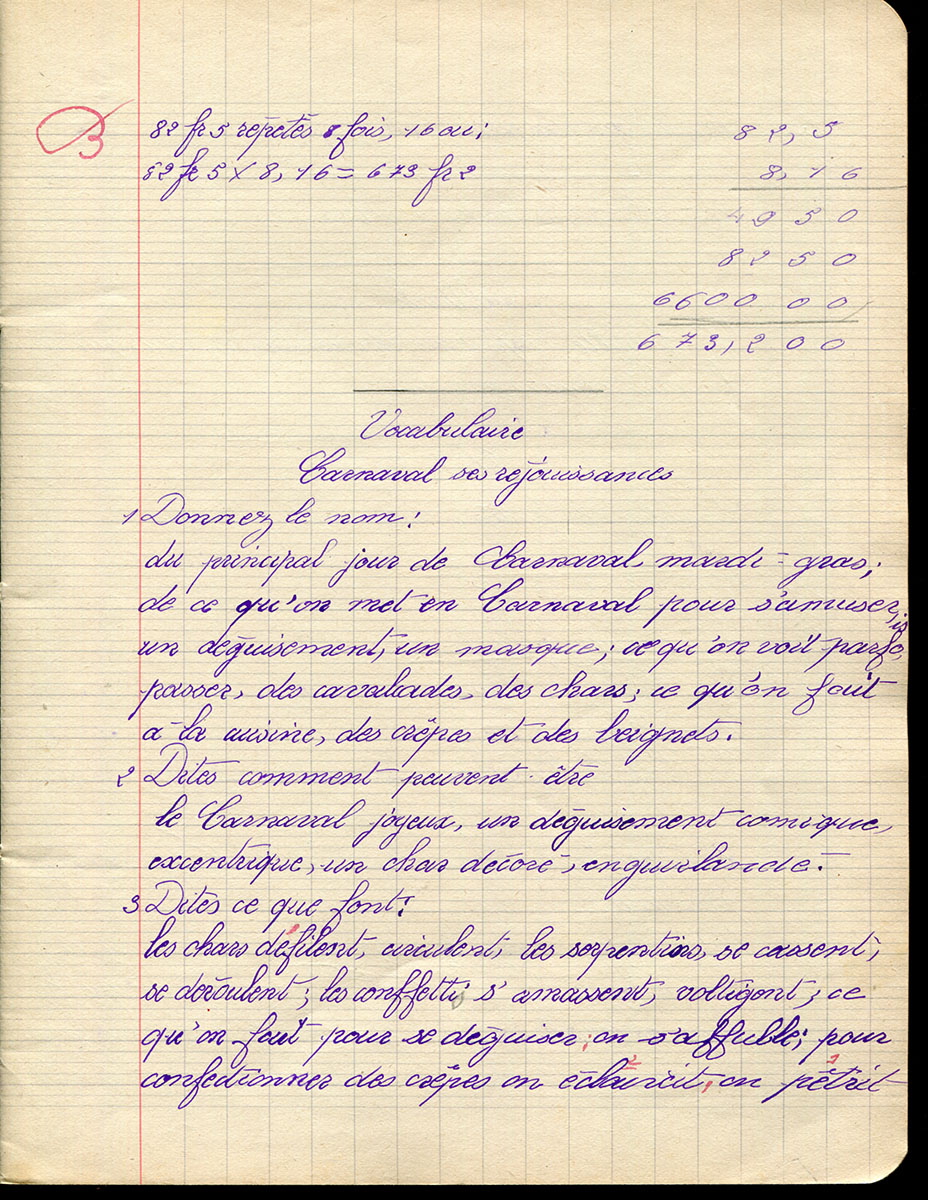 B
82 fr 5 répétés 8 fois, 16 ou :
82 fr 5 X 8, 16 = 673 fr 2
82,5
8,16
4950
8250
660000
673,200
Vocabulaire
Carnaval ses réjouissances
1 Donnez le nom :
du principal jour de Carnaval, mardi-gras ;
de ce qu'on met en Carnaval pour s'amuser,
un déguisement, un masque ; ce qu'on voit parfois
passer, des cavalcades, des chars ; ce qu'on fait
à la cuisine, des crêpes et des beignets.
2 Dites comment peuvent être
le Carnaval joyeux, un déguisement comique,
excentrique, un char décoré, enguirlandé.
3 Dites ce que font :
les chars défilent, circulent, les serpentins, se cassent,
se déroulent ; les conffetti s'amassent, voltigent ; ce
qu'on fait pour se déguiser, on s'affuble ; pour
confectionner des crêpes on éclaircit, on pétrit